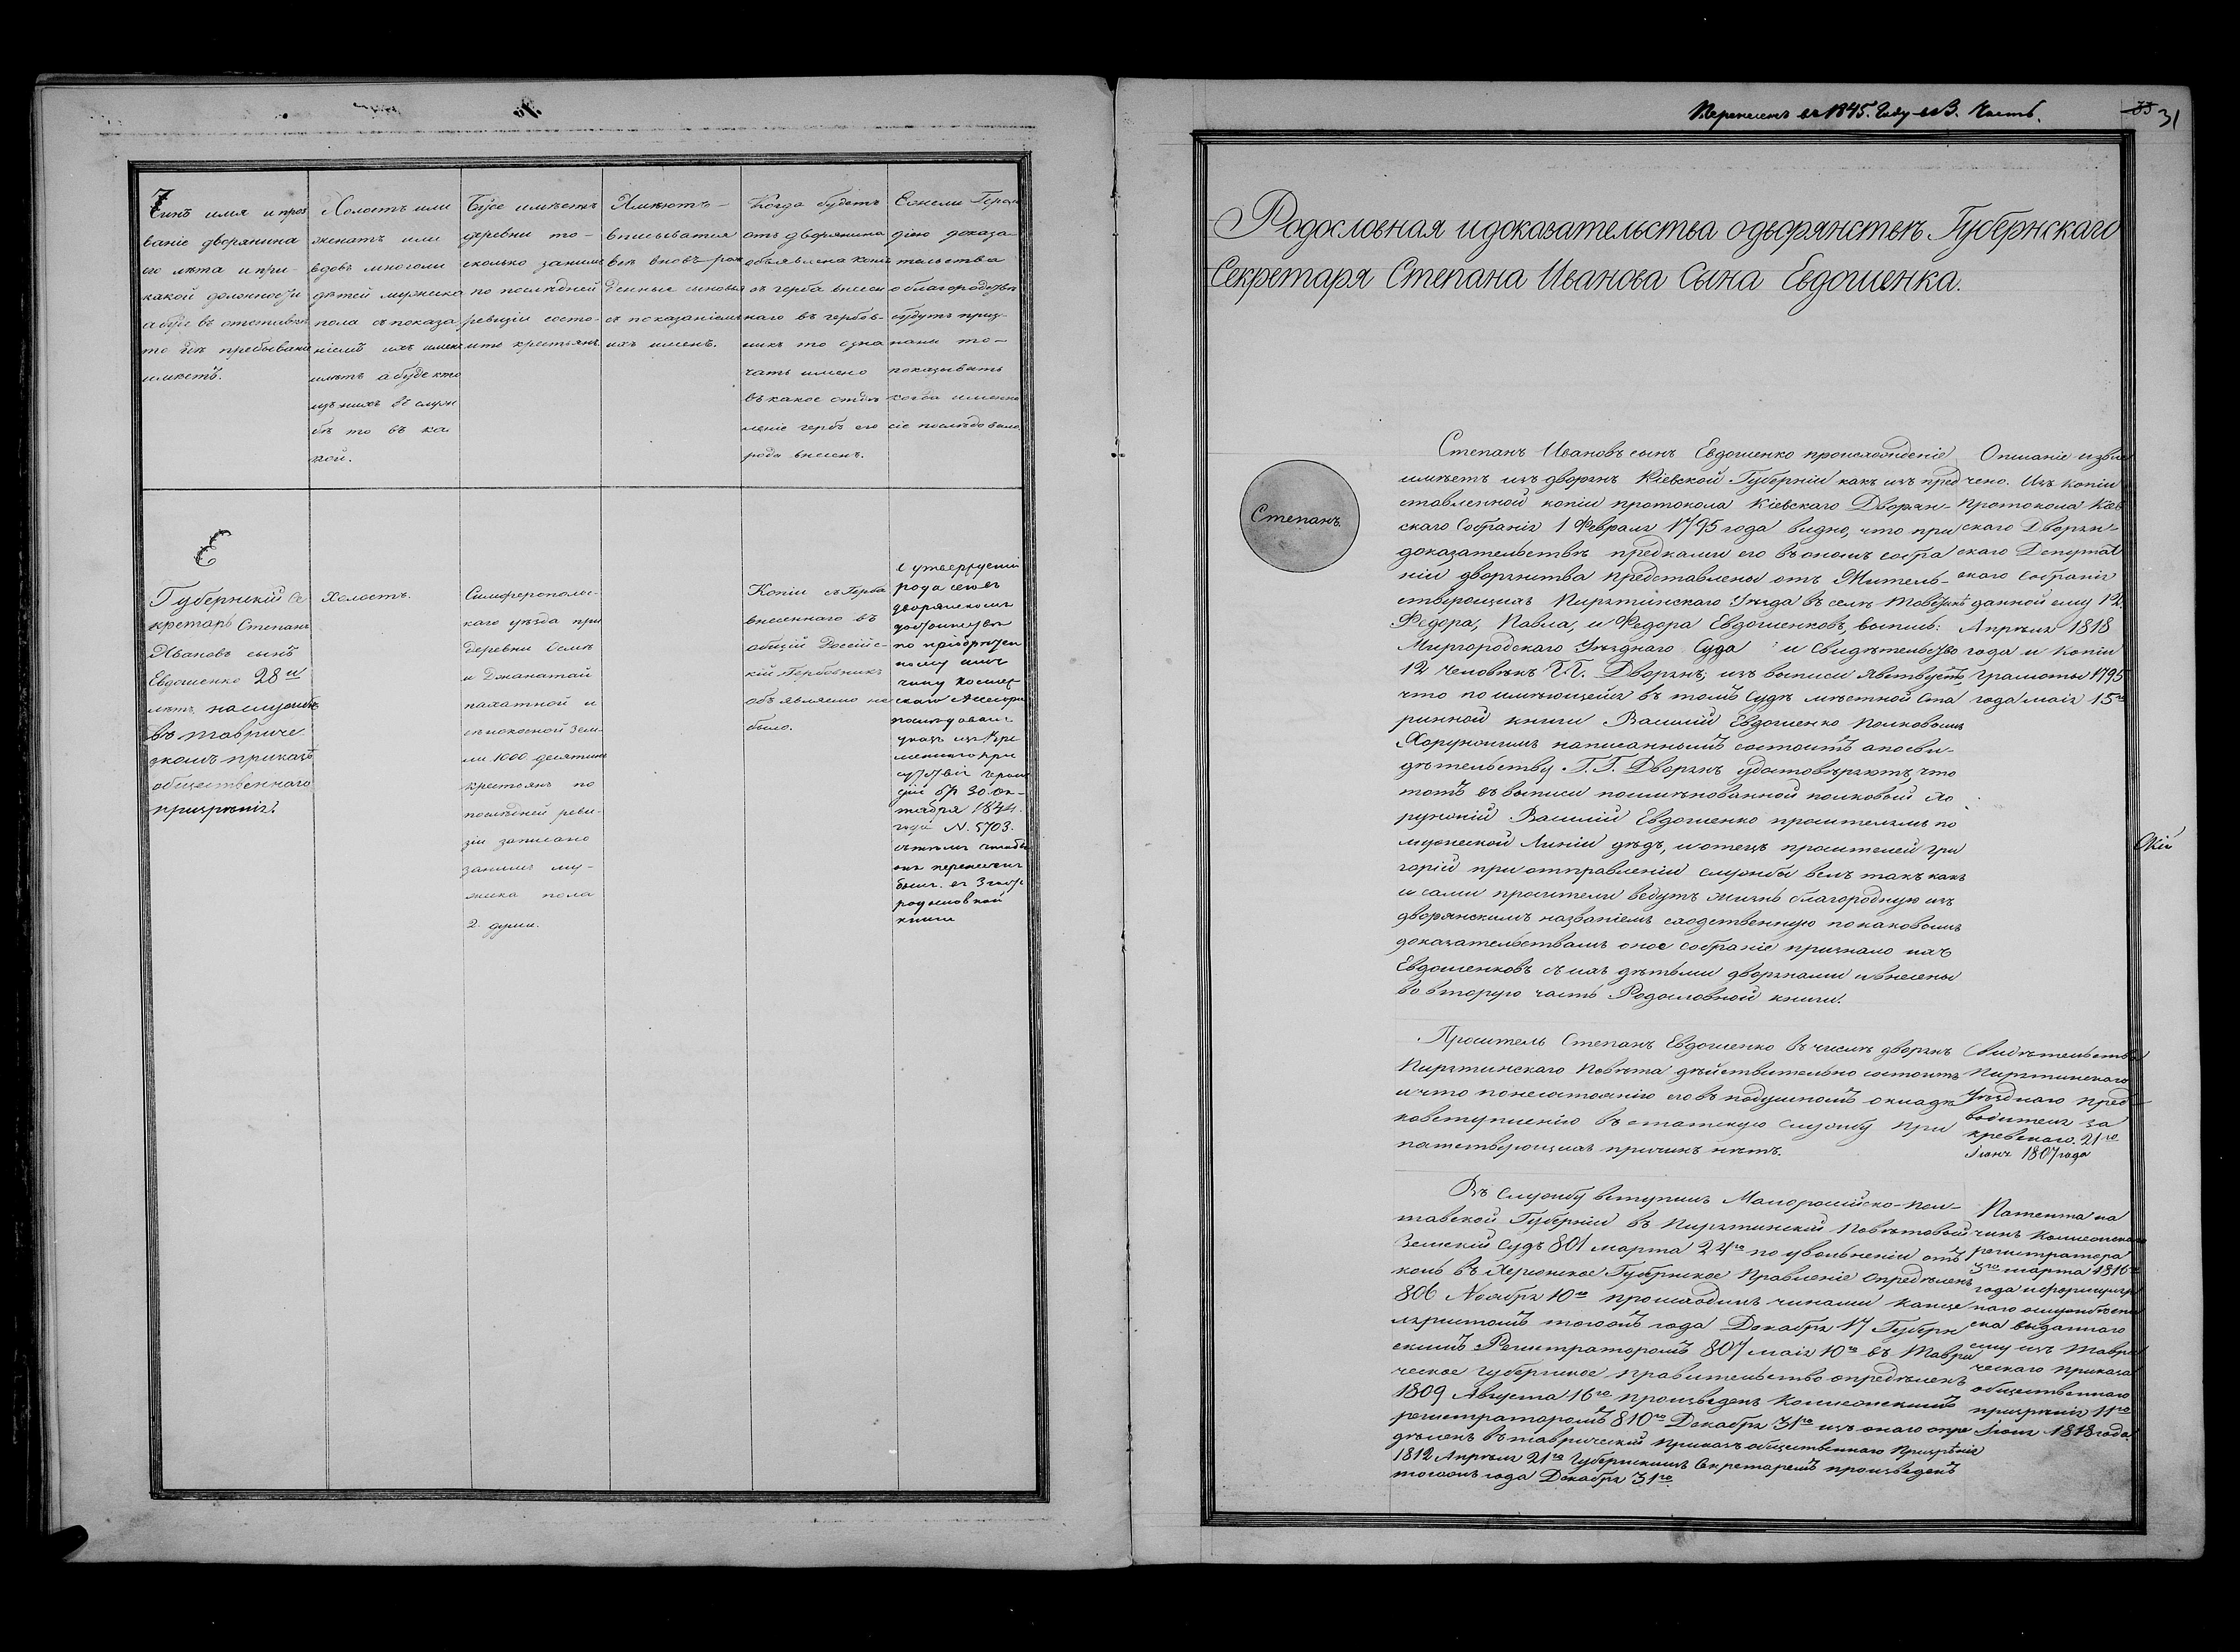 7
Чинъ имя и проз
ваніе дворянина
его лѣта и при
какой должности
а буде въ отставкѣ
то гдѣ пребываніе
имѣетъ.
Холостъ или
женатъ или
вдовъ многоли
дѣтей мужеска
пола съ показа
ніемъ ихъ имен
лѣтъ а буде кто
изъ нихъ въ служ
бѣ то въ ка
кой.
Буде имѣетъ
деревни то-
сколько занимъ
по послѣдней
ревизіи состо-
итъ крестьянъ.
Имѣютъ-
вписыватся
всѣ вновь рож
денные сыновья
съ показаніемъ
ихъ именъ.
Когда будетъ
отъ дворянина
объявлена копія
съ герба внесен
наго въ гербов-
никъ то озна
чать имено
въ какое отдѣ
леніе гербъ его
рода внесенъ.
Ежели Герол
діею доказа-
тельства
о благородствѣ
будутъ приз-
наны то-
показывать
когда именно
сіе послѣдовало.
Е
Губернскій Се
кретарь Степанъ
Ивановъ сынъ
Евдошенко 28и
лѣтъ, на службѣ
въ тавриче
скомъ приказѣ
общественнаго
призрѣнія.
Холостъ.
Симферопольс-
каго уѣзда при
деревни Бешъ
и Джанатай
пахатной и
сѣнокосной зем-
ли 1000 десятинъ
крестьянъ по
послѣдней реви-
зіи записано
занимъ му-
жска пола
2 души.
Копіи съ Герба
внесеннаго въ
общій Россійс-
кій Гербовникъ
объявляемо не
было.
О утвержденіи
рода сего въ
дворянскомъ
достоинствѣ
по пріобрѣтен
ному имъ
чину Коллеж
скаго Ассесора
послѣдовалъ
указъ изъ Вре
меннаго при
сутствія герольд
діи отъ 30 Ок-
тября 1844.
года N. 5703.
съ тѣмъ чтобы
онъ перенесенъ
былъ въ 3 часть
родословной
книги
Перенесенъ въ 1845. Году въ 3. Часть.
31
Родословная и доказательства о дворянствѣ Губернскаго
Секретаря Степана Иванова Сына Евдошенка.
Степанъ
Степанъ Ивановъ сынъ Евдошенко происхожденіе
имѣетъ изъ дворянъ Кіевской Губерніи какъ изъ пред
ставленной копіи протокола Кіевскаго Дворян-
скаго Собранія 1 Февраля 1795 года видно, что при
доказательствѣ предками его въ ономъ собра
ніи дворянства представлены отъ Житель-
ствующихъ Пирятинскаго Уѣзда въ селѣ
Федора, Павла, и Федора Евдошенковъ, выписъ:
Миргородскаго Уѣзднаго Суда и Свидѣтельство
12 человѣкъ Г.Г. Дворянъ; изъ выписи явствуетъ,
что по имѣющейся въ томъ Судѣ мѣстной Ста
ринной книги Василій Евдошенко полковымъ
Хорунжимъ написаннымъ состоитъ а по сви-
дѣтельству Г.Г. Дворянъ удостовѣряютъ, что
тотъ въ выписи поименованной полковый хо
рунжій Василій Евдошенко просителямъ по
мужеской линіи дѣдъ, и отецъ просителей Гри
горій при отправленіи службы велъ такъ какъ
и сами просители ведутъ жизнь благородную изъ
дворянскимъ названіемъ сходственную по каковымъ
доказательствамъ оное собраніе признало ихъ
Евдошенковъ съ ихъ дѣтьми дворянами и внесены
во вторую часть Родословной книги.
Описаніе извле
чено. Изъ копіи
протокола Кіев
скаго Дворян-
скаго Депутат
скаго собранія
данной ему 12.
Апрѣля 1818
года и копіи
грамоты 1795
года маія 15го
Проситель Степанъ Евдошенко въ числѣ дворянъ
Пирятинскаго Повѣта дѣйствительно состоитъ
и что по несостоянію его въ подушномъ окладѣ
ко вступленію въ статскую службу при
патствующихъ причинъ нѣтъ.
Свидѣтельство
Пирятинскаго
Уѣзднаго пред
водителя за
кревскаго. 21го
Іюня 1807 года
Въ службу вступилъ Малоросійско-пол-
тавской Губерніи въ Пирятинскій Повѣтовый
Земскій Судъ 801 марта 24го по увольненіи отъ
коль въ Херсонское Губернское Правленіе опредѣленъ
806 Ноября 10го происходилъ чинами канце
ляристомъ тогожъ года Декабря 17 Губерн
скимъ Регистраторомъ 807 маія 10го въ Таври
ческое губернское правительство опредѣленъ
1809 Августа 16го произведенъ Коллежскимъ
регистраторомъ 810го Декабря 31го изъ онаго опре
дѣленъ въ таврическій приказъ общественнаго призрѣнія
1812 Апрѣля 21го Губернскимъ Секретаремъ произведенъ
тогожъ года Декабря 31го.
Патента на
чинъ Коллежскаго
регистратора
3го марта 1816го
года и формуляр
наго о службѣ спи
ска выданнаго
ему изъ Таври
ческаго приказа
общественнаго
призрѣнія 11го
Іюня 1818 года.